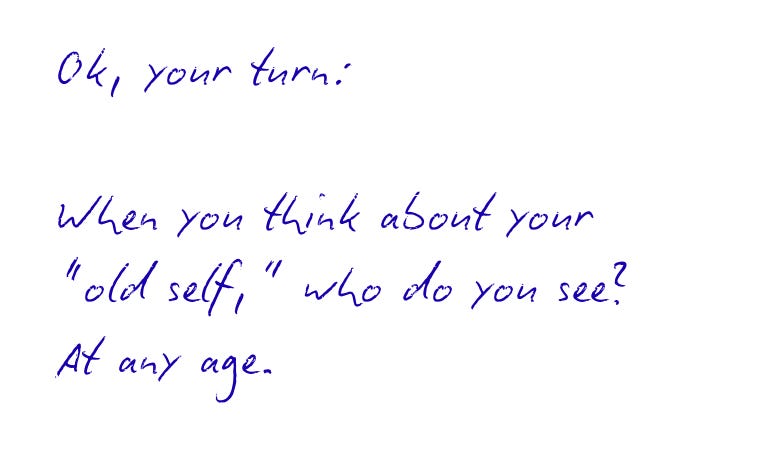 Ok, your turn:
When you think about your
"old self," who do you see?
At any age.